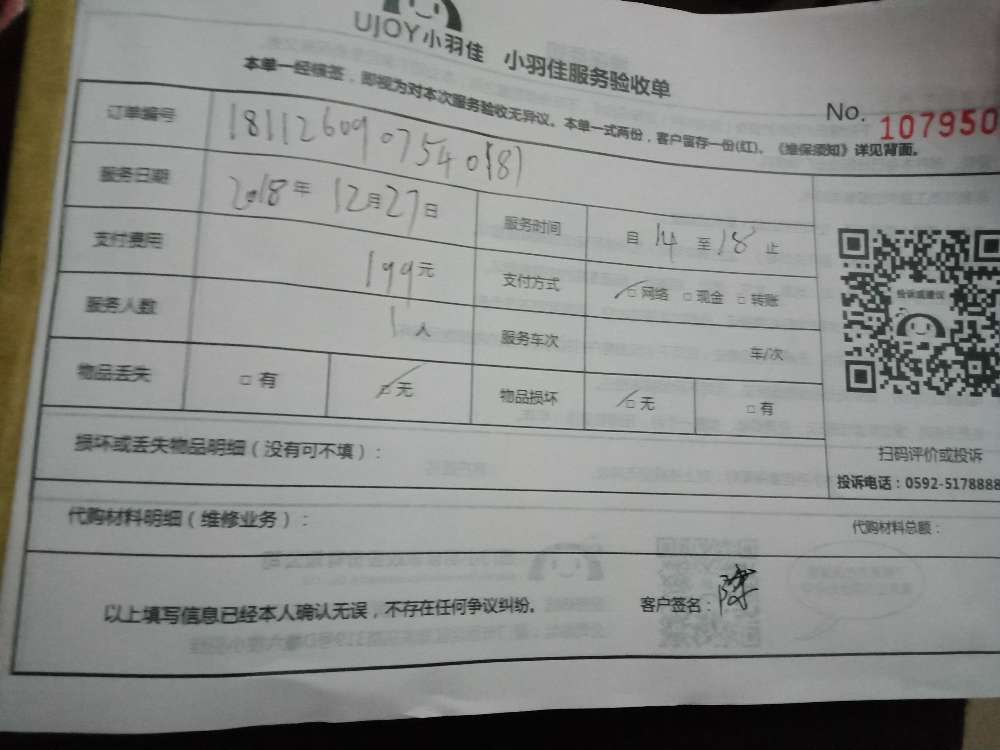 UJOY小羽佳 小羽佳服务验收单
本单一经核签，即视为对本次服务验收无异议。本单一式两份，客户留存一份(红)。《维保须知》详见背面。
No. 107950
订单编号 1811260907540(8)
服务日期 2018年 12月27日 服务时间 自 14 至 18 止
支付费用 199元 支付方式 □网络 □现金 □转账
服务人数 1人 服务车次 车/次
物品丢失 □有 □无 物品损坏 □无 □有
投诉或建议
扫码评价或投诉
投诉电话：0592-5178888
损坏或丢失物品明细（没有可不填）：
代购材料明细（维修业务）： 代购材料总额：
以上填写信息已经本人确认无误，不存在任何争议纠纷。 客户签名：陈